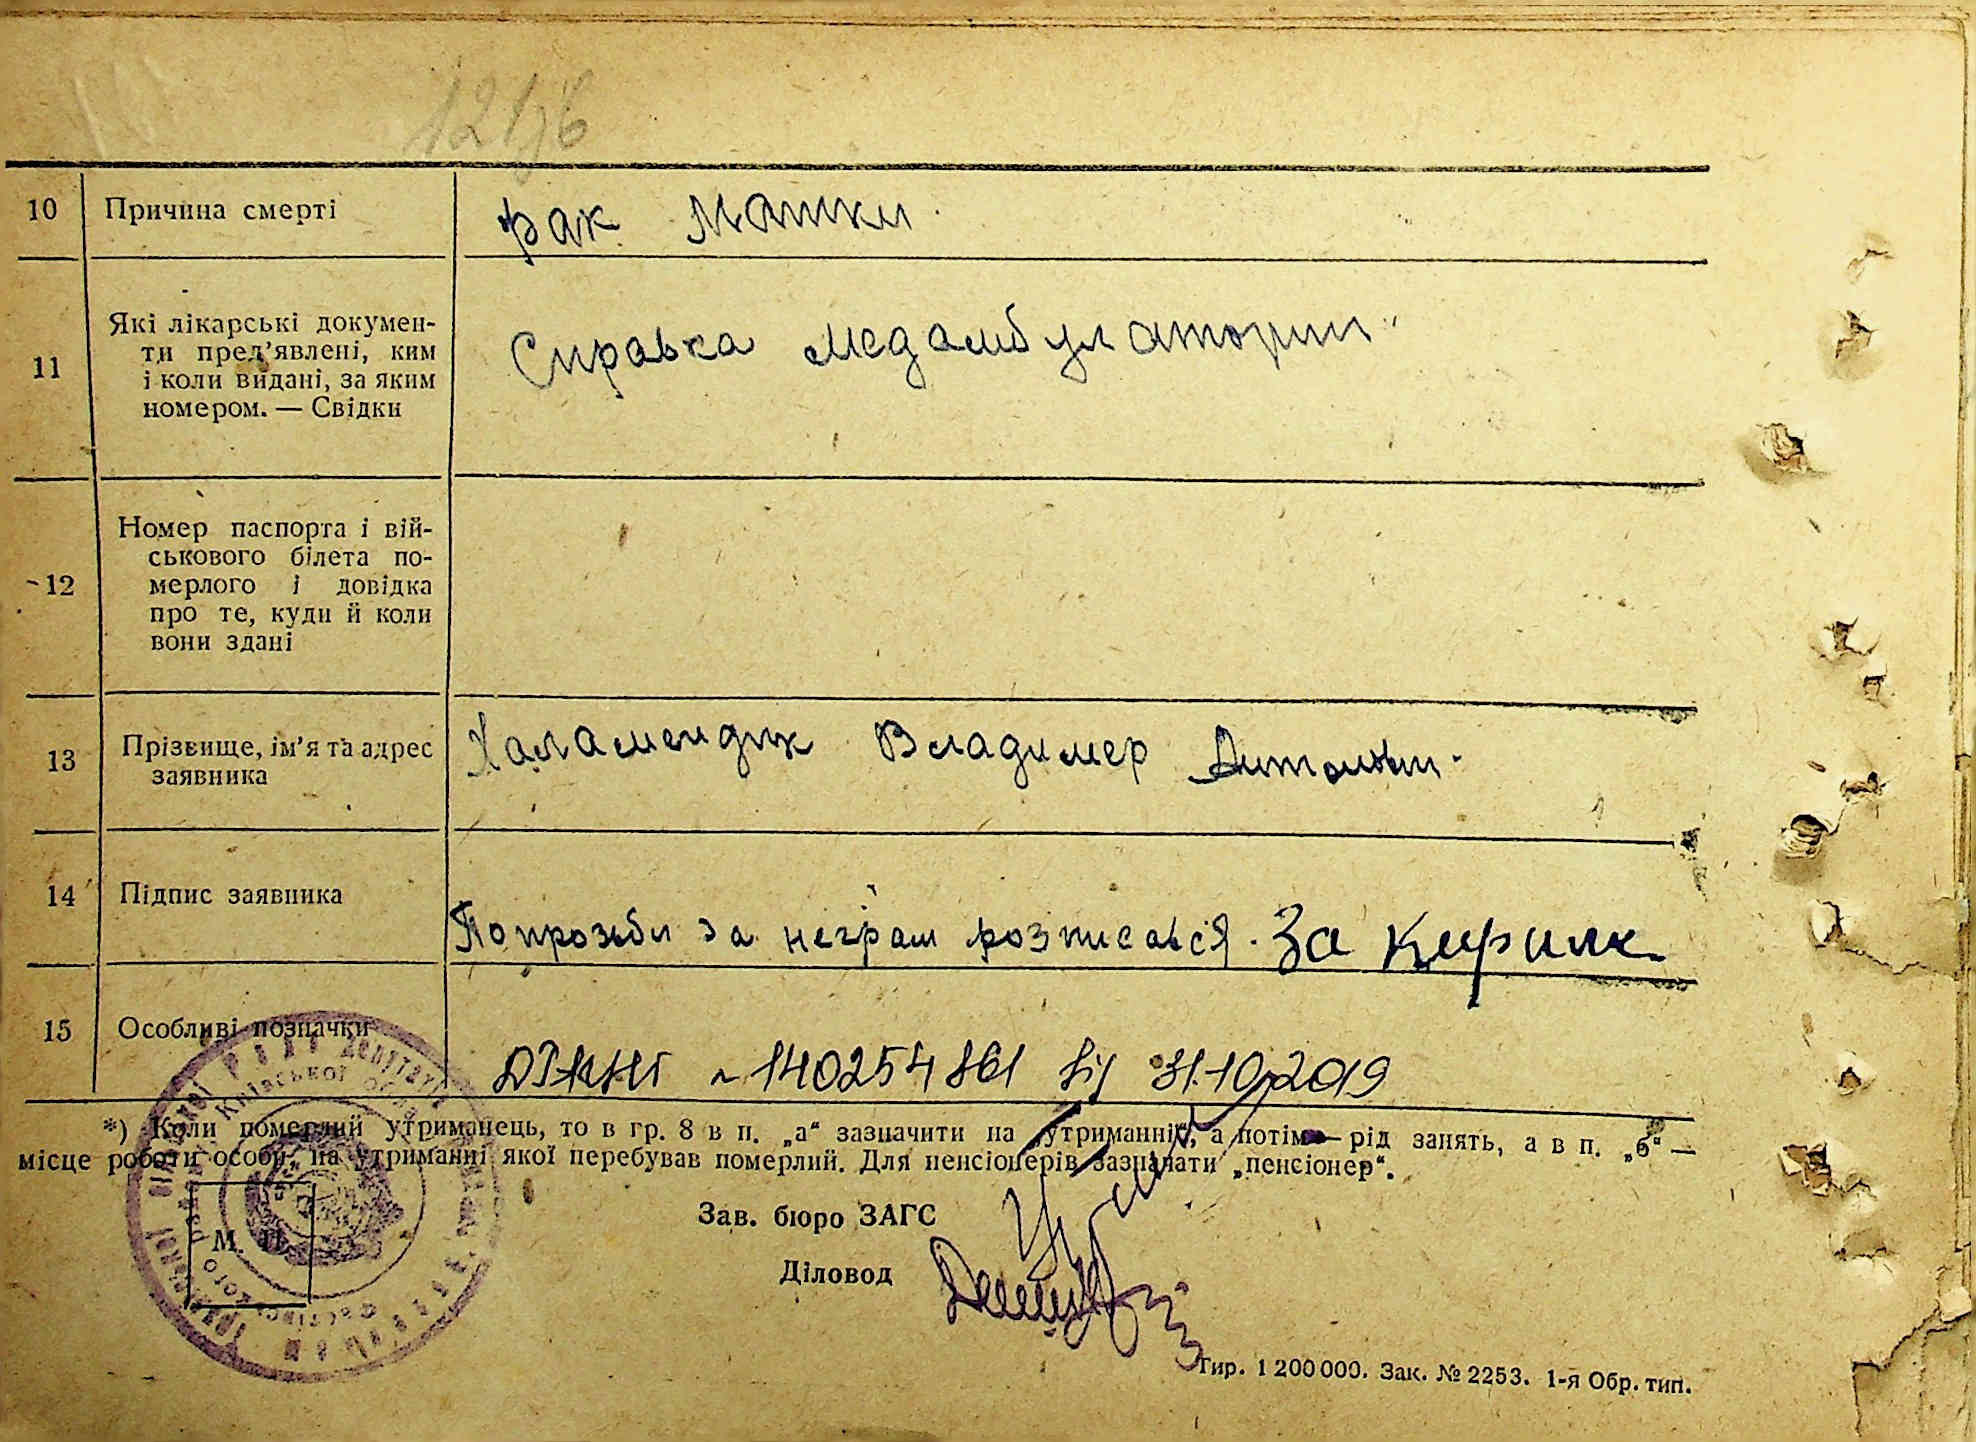 121/6
10 Причина смерті рак Матки
11 Які лікарські докумен-
ти пред’явлені, ким
і коли видані, за яким
номером. — Свідки
Справка Медамбулатории
12 Номер паспорта і вій-
ськового білета по-
мерлого і довідка
про те, куди й коли
вони здані
13 Прізвище, ім’я та адрес
заявника
Халамендик Владимер
14 Підпис заявника
По прозьби за неграм розписався. За Кирилк
15 Особливі позначки
140254861 від 31.10.2019
*) Коли померлий утриманець, то в гр. 8 в п. „а“ зазначити на „утриманні“, а потім — рід занять, а в п. „б“ —
місце роботи особи, на утриманні якої перебував померлий. Для пенсіонерів зазначати „пенсіонер“.
Київської
М. П.
Зав. бюро ЗАГС
Діловод
Тир. 1 200 000. Зак. № 2253. 1-я Обр. тип.